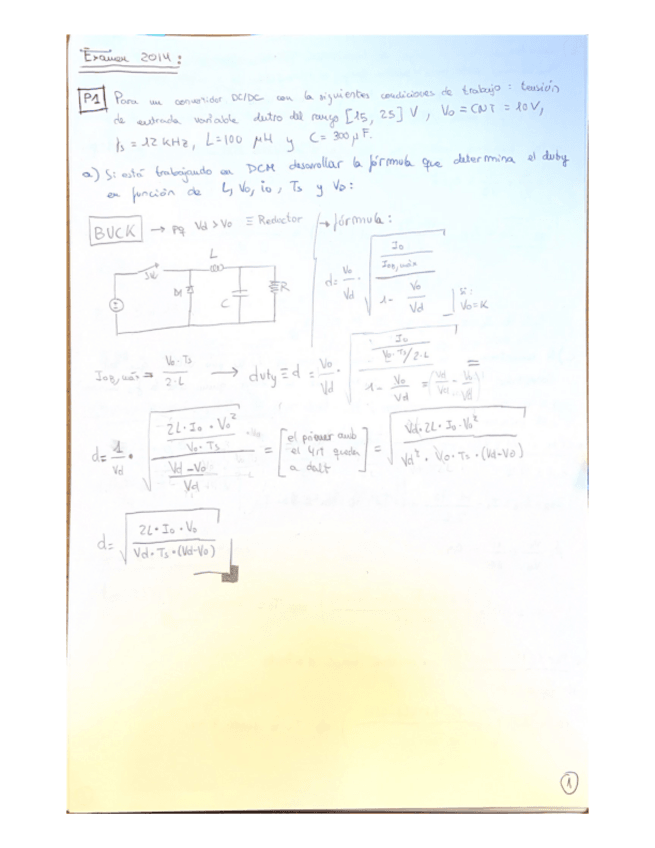 Examen 2014:
P1 Para un convertidor DC/DC con la siguientes condiciones de trabajo: tensión
de entrada variable dentro del rango [15, 25] V, Vo = CNT = 10V,
fs = 12 kHz, L=100 μH y C= 300 μF.
a) Si está trabajando en DCM desarrollar la fórmula que determina el duty
en función de L, Vo, io, Ts y VD:
BUCK → pq Vd > Vo ≡ Reductor → fórmula:
L
SW
D1
C
R
d= Vo/Vd · √((Io/IoB,máx)/(1- Vo/Vd)) si: Vo=K
IoB,máx = Vo·Ts/2·L → duty ≡ d = Vo/Vd · √((Io/(Vo·Ts/2·L))/(1- Vo/Vd)) = (Vd/Vd - Vo/Vd) =
d= 1/Vd · √((2L·Io·Vo²/Vo·Ts)/((Vd-Vo)/Vd)) = [el primer amb el 4rt queden a dalt] = √(Vd·2L·Io·Vo²/Vd²·Vo·Ts·(Vd-Vo))
d= √(2L·Io·Vo/Vd·Ts·(Vd-Vo))
1